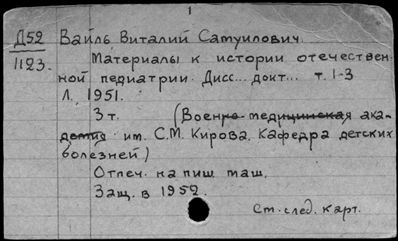 1
Д52 Вайль Виталий Самуилович.
1123. Материалы к истории отечествен-
ной педиатрии. Дисс... докт... т. 1-3
Л., 1951.
3 т. (Военно-медицинская ака-
демия им. С.М. Кирова. Кафедра детских
болезней)
Отпеч. на пиш. маш.
Защ. в 1952.
См. след. карт.